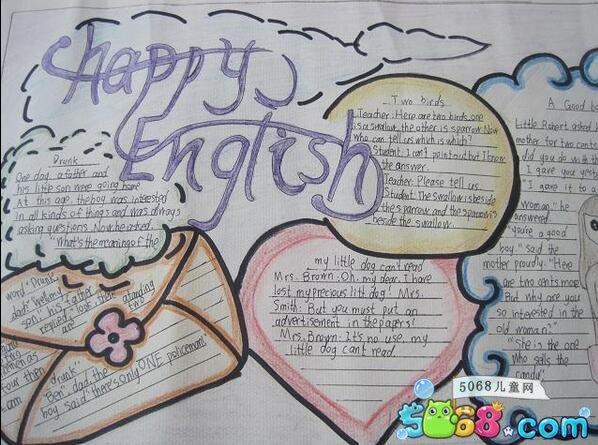 happy
English
Drunk
One day, a father and
his little son were going home
At this age, the boy was interested
in all kinds of things and was always
asking questions. Now, he asked.
"What's the meaning of the
word 'Drunk',
dad? "Well my
son," his father
replied "look there
are
standing
two
four then
am
drunk."
"Ben" dad, the
boy said there's only ONE policeman!
Two birds
Teacher: Here are two birds, one
is a swallow, the other is sparrow. Now
who can tell us which is which?
Student: I can't point out but I know
the answer.
Teacher: Please tell us.
Student: The swallow is beside
the sparrow and the sparrow is
beside the swallow.
my little dog can't read
Mrs. Brown: Oh, my dear, I have
lost my precious litt dog! Mrs.
Smith: But you must put an
advertisement in the papers!
Mrs. Brown: It's no use, my
little dog can't read
A Good bo
Little Robert asked
mother for two cents
did you do with the
I gave you yester
I gave it to a
woman," he
answered
"you're a
good
boy." said the
mother proudly. "Here
are two cents more
But why are you
so interested in the
old woman?"
"She is the one
who sells the
candy."
5068儿童网
5068.com